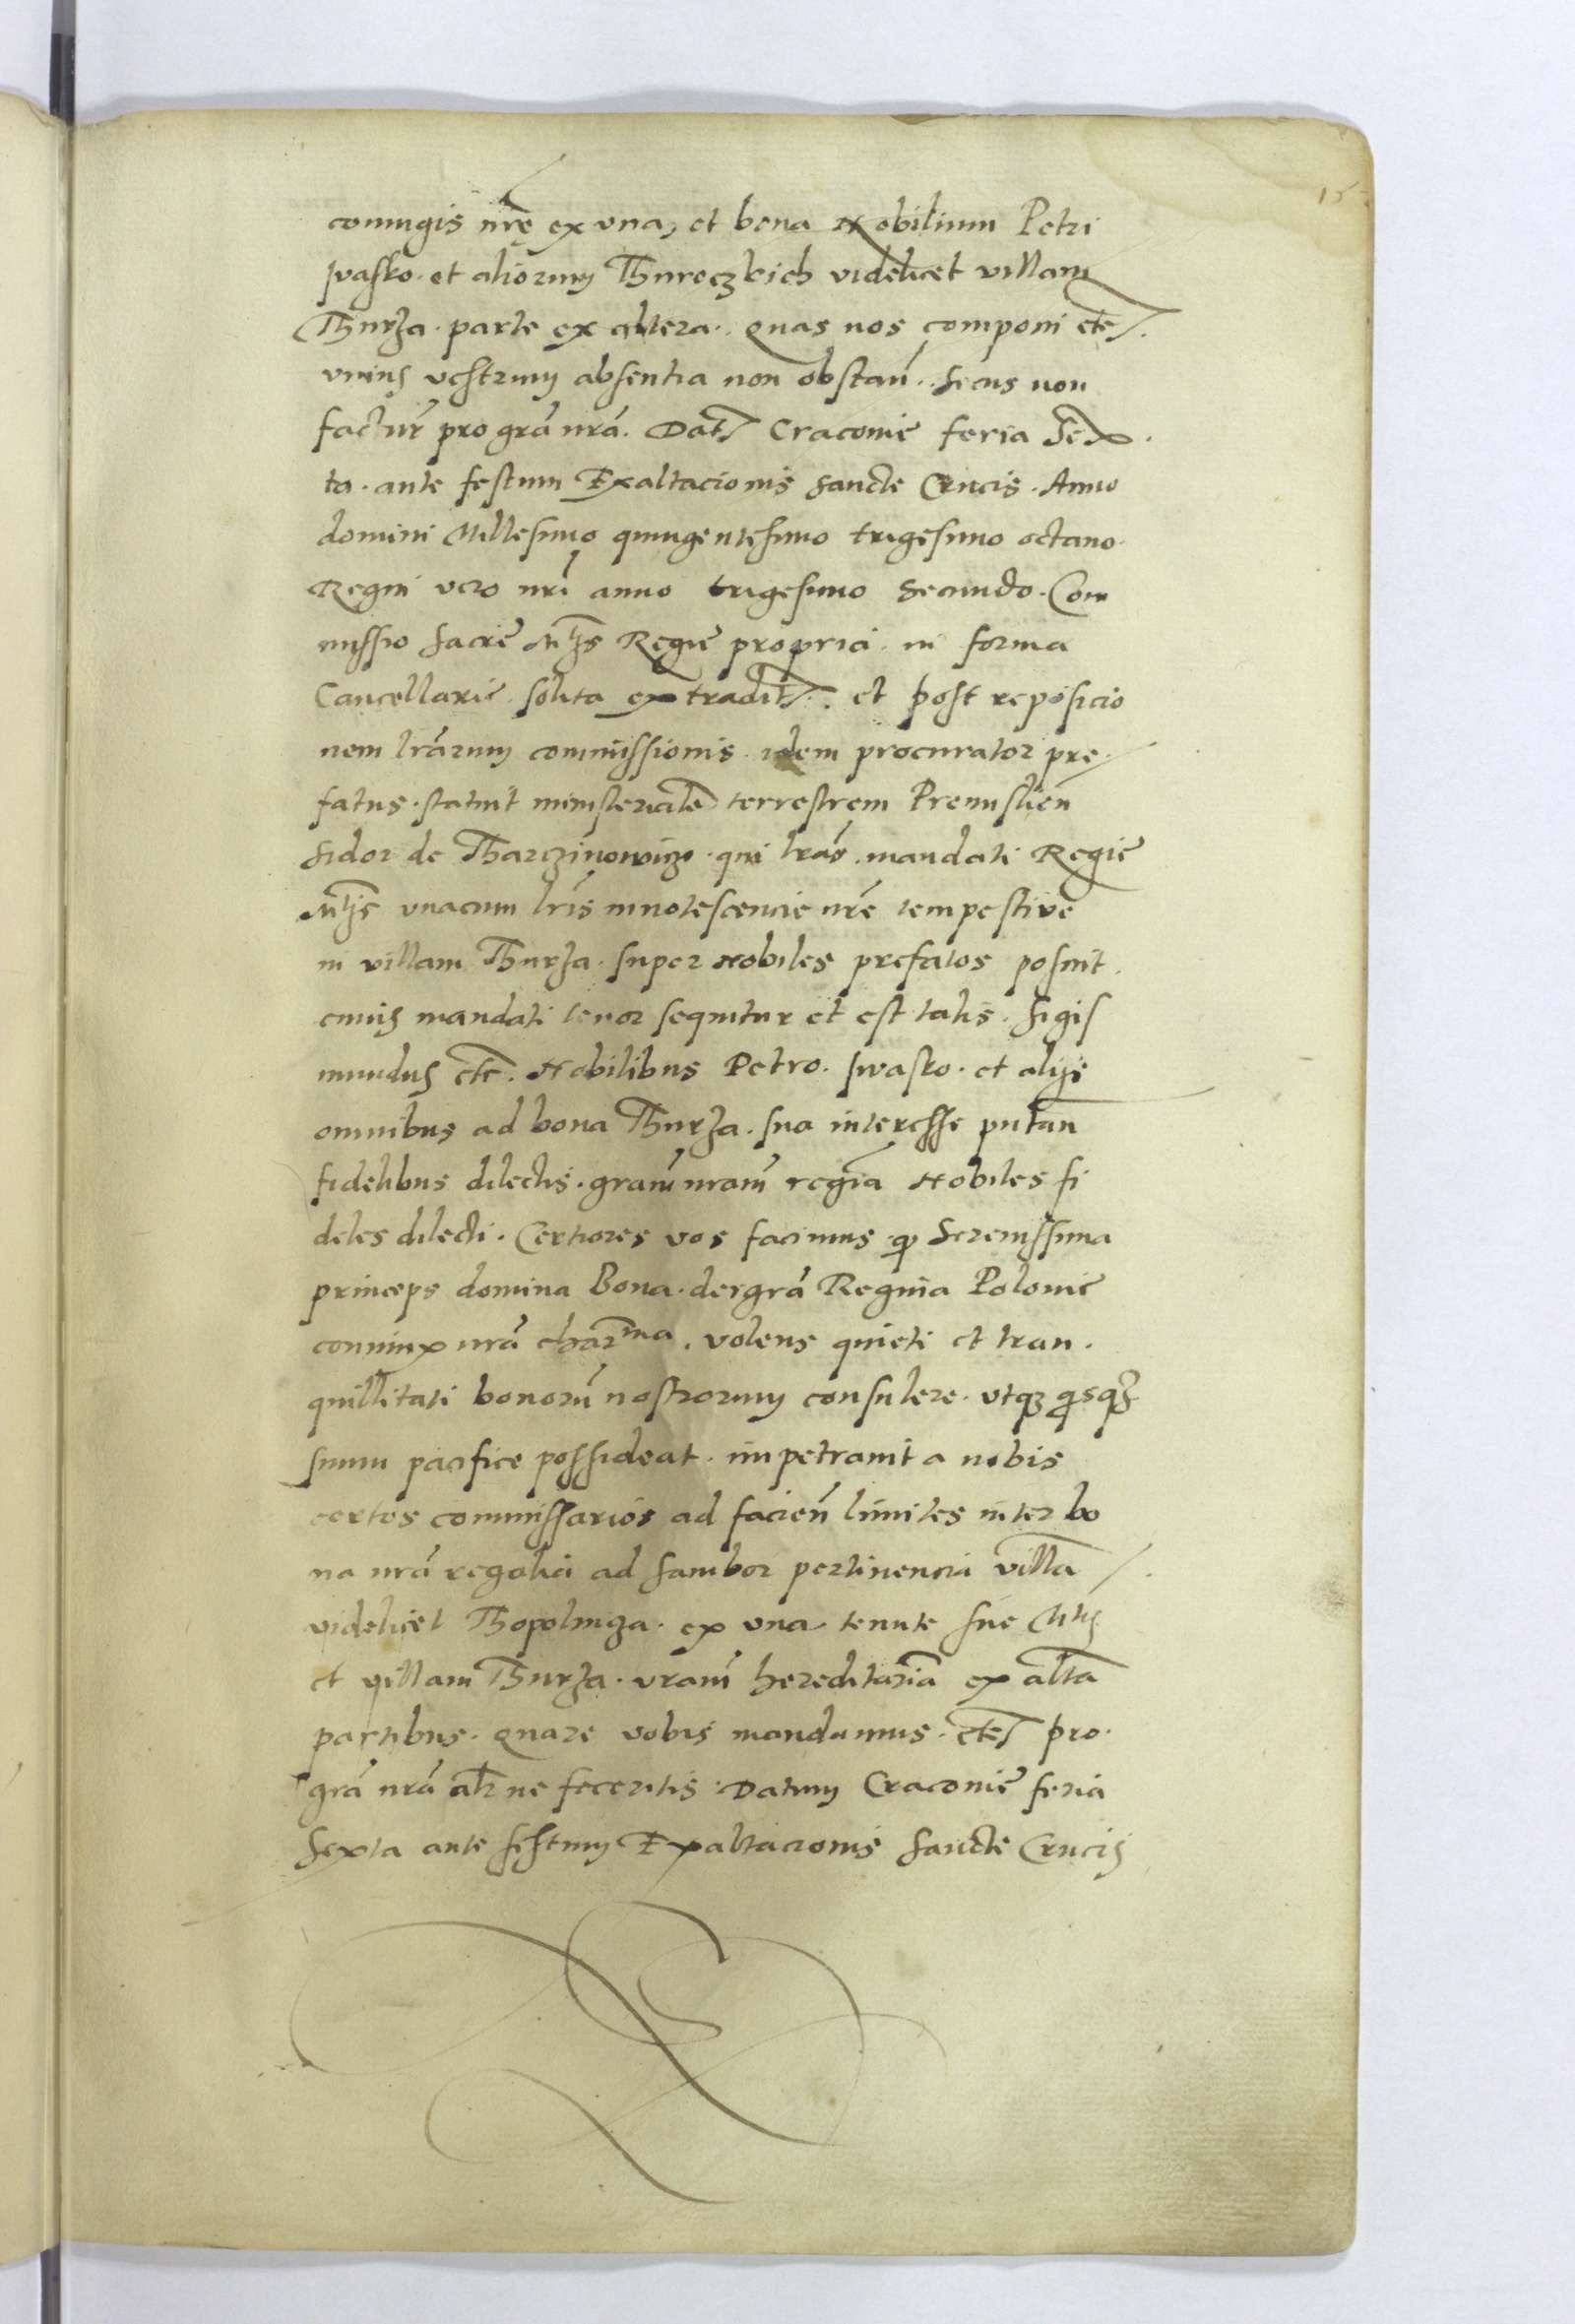 15
coniugis nrę ex vna, et bona Nobilium Petri
Ivasko. et aliorum Thureczkich videlicet villam
Thurza. parte ex altera. quas nos componi etc.
vnius vestrum absentia non obstan̄. Secus non
factur̄ pro grā nrā. Dat. Cracovie feria Sex
ta. ante festum Exaltacionis sancte Crucis. Anno
domini Millesimo quingentesimo trigesimo octavo.
Regni vero nrī anno trigesimo secundo. Com
missio sacre Mt̄is Regie propria. in forma
Cancellarie solita extradit. et post reposicio
nem lrārum commissionis. idem procurator pre
fatus. statuit ministerialem terrestrem Premislien̄
Sidor de Tharczinowicze. qui lrās mandati Regie
Mt̄is vnacum lrīs innotescencie nrē tempestive
in villam Thurza. super Nobiles prefatos posuit.
cuius mandati tenor sequitur et est talis. Sigis
mundus etc. Nobilibus Petro. Iwasko. et alijs
omnibus ad bona Thurza. sua interesse putan̄
fidelibus dilectis. gram̄ nram̄ regiā Nobiles fi
deles dilecti. Certiores vos facimus q̨ Serenissima
princeps domina Bona. dei grā Regina Polonie
coniunx nrā charma. volens quieti et tran.
quillitati bonorū nostrorum consulere. utq₃ qisq₃
suum pacifice possideat. impetravit a nobis
certos commissarios ad facien̄ limites inter bo
na nrā regalia ad Sambor pertinencia villā
videlicet Thopolnyza. ex vna tenute sue Mtis
et villam Thurza. vram̄ hereditariā ex altā
partibus. Quare vobis mandamus. etc. pro.
grā nrā alr̄ ne feceritis. Datum Cracovie feria
sexta ante festum Exaltacionis Sancte Crucis